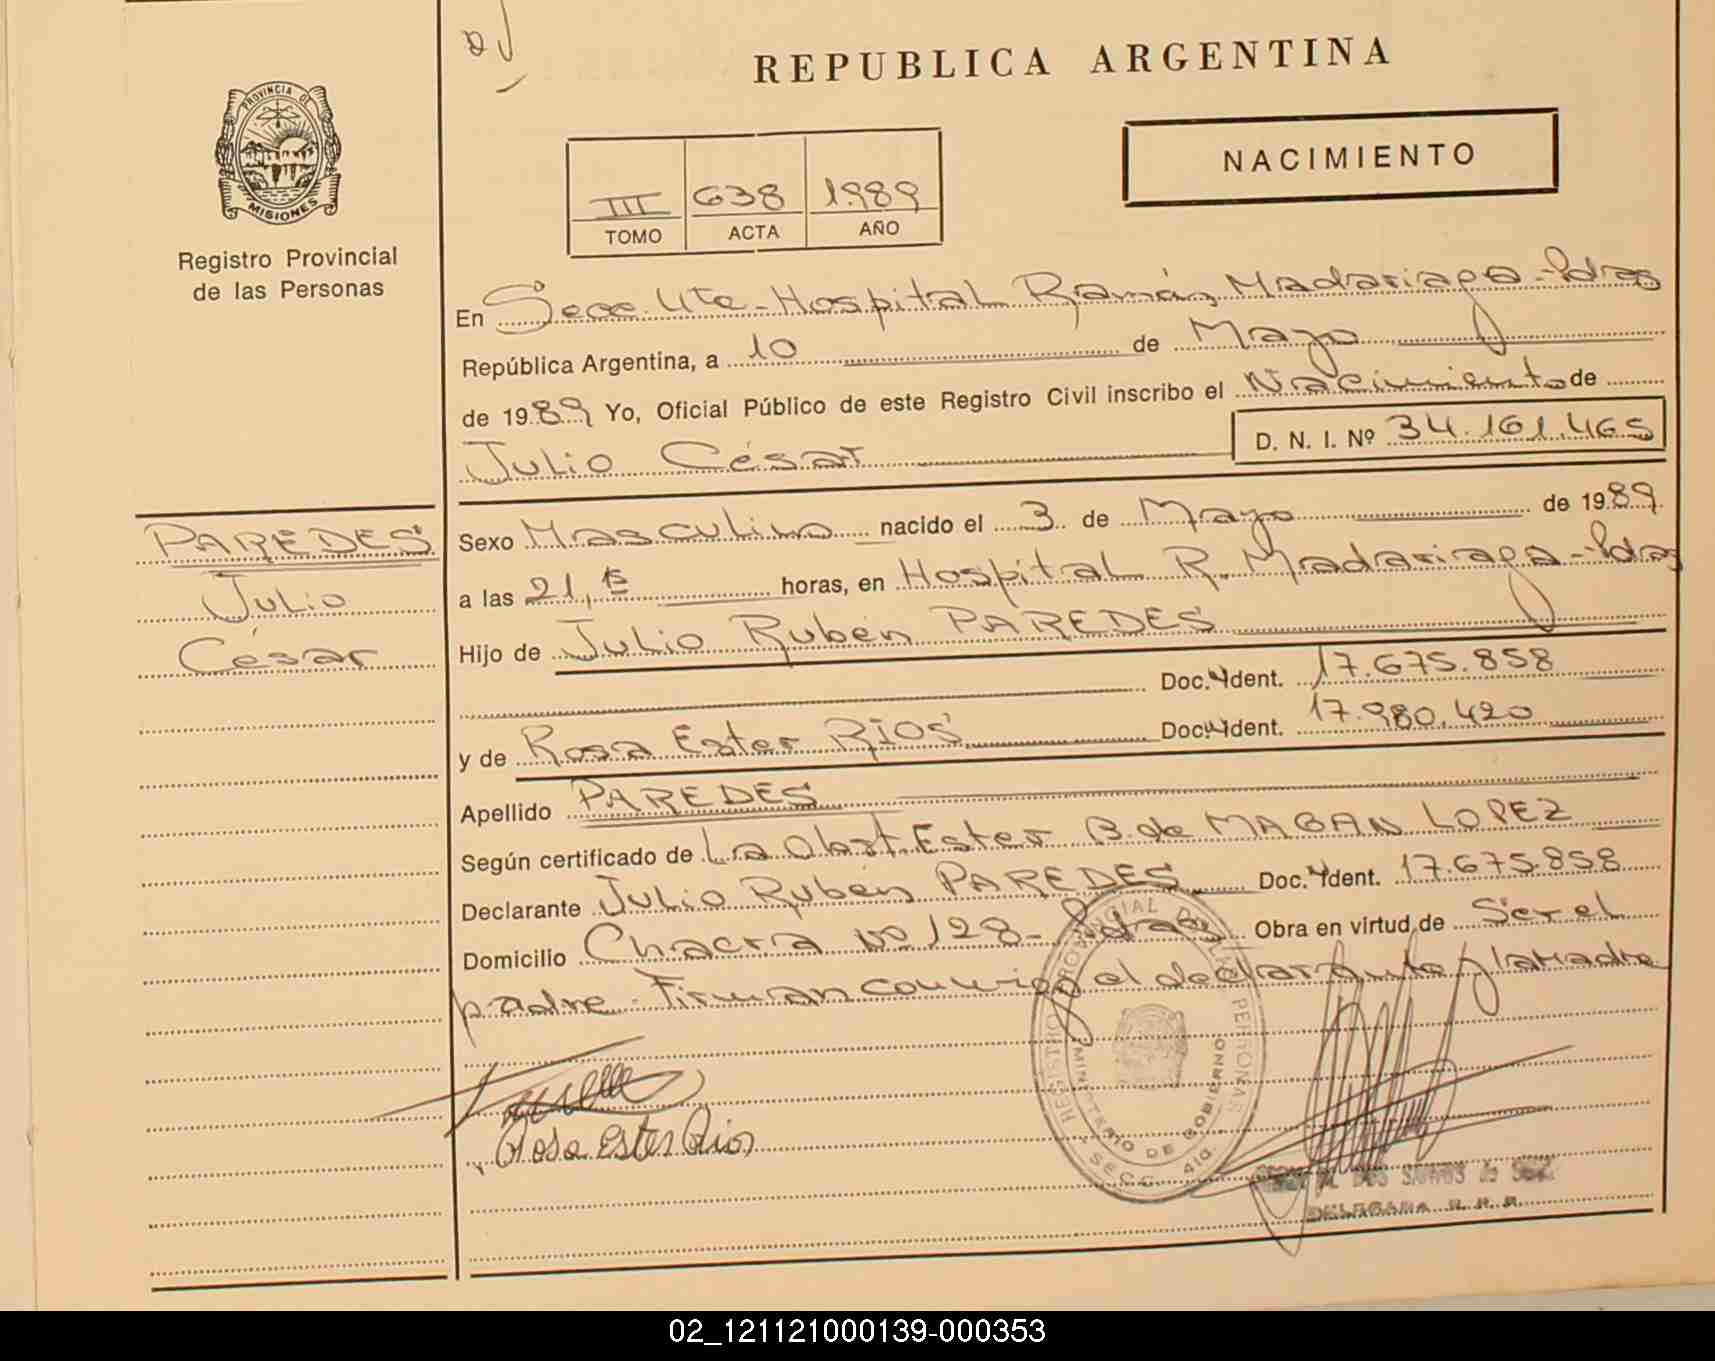 REPUBLICA ARGENTINA
NACIMIENTO
PROVINCIA DE
MISIONES
Registro Provincial
de las Personas
III 638 1989
TOMO ACTA AÑO
En Secc. Ute - Hospital Ramón Madariaga - Pdas
República Argentina, a 10 de Mayo
de 1989 Yo, Oficial Público de este Registro Civil inscribo el Nacimiento de
Julio César D. N. I. Nº 34.161.465
PAREDES
Julio
César
Sexo Masculino nacido el 3 de Mayo de 1989
a las 21,15 horas, en Hospital R. Madariaga - Pdas
Hijo de Julio Rubén PAREDES
Doc. Ident. 17.675.858
y de Rosa Ester RIOS Doc. Ident. 17.980.420
Apellido PAREDES
Según certificado de La Obst. Ester B. de MAGAN LOPEZ
Declarante Julio Rubén PAREDES Doc. Ident. 17.675.858
Domicilio Chacra Nº 128 - Pdas Obra en virtud de Ser el
padre. Firman conmigo el declarante y la madre
Rosa Ester Rios
REGISTRO PROVINCIAL DE LAS PERSONAS
MINISTERIO DE GOBIERNO
SECC. 4ta.
DOS SANTOS de
DELEGADA R. P. P.
02_121121000139-000353